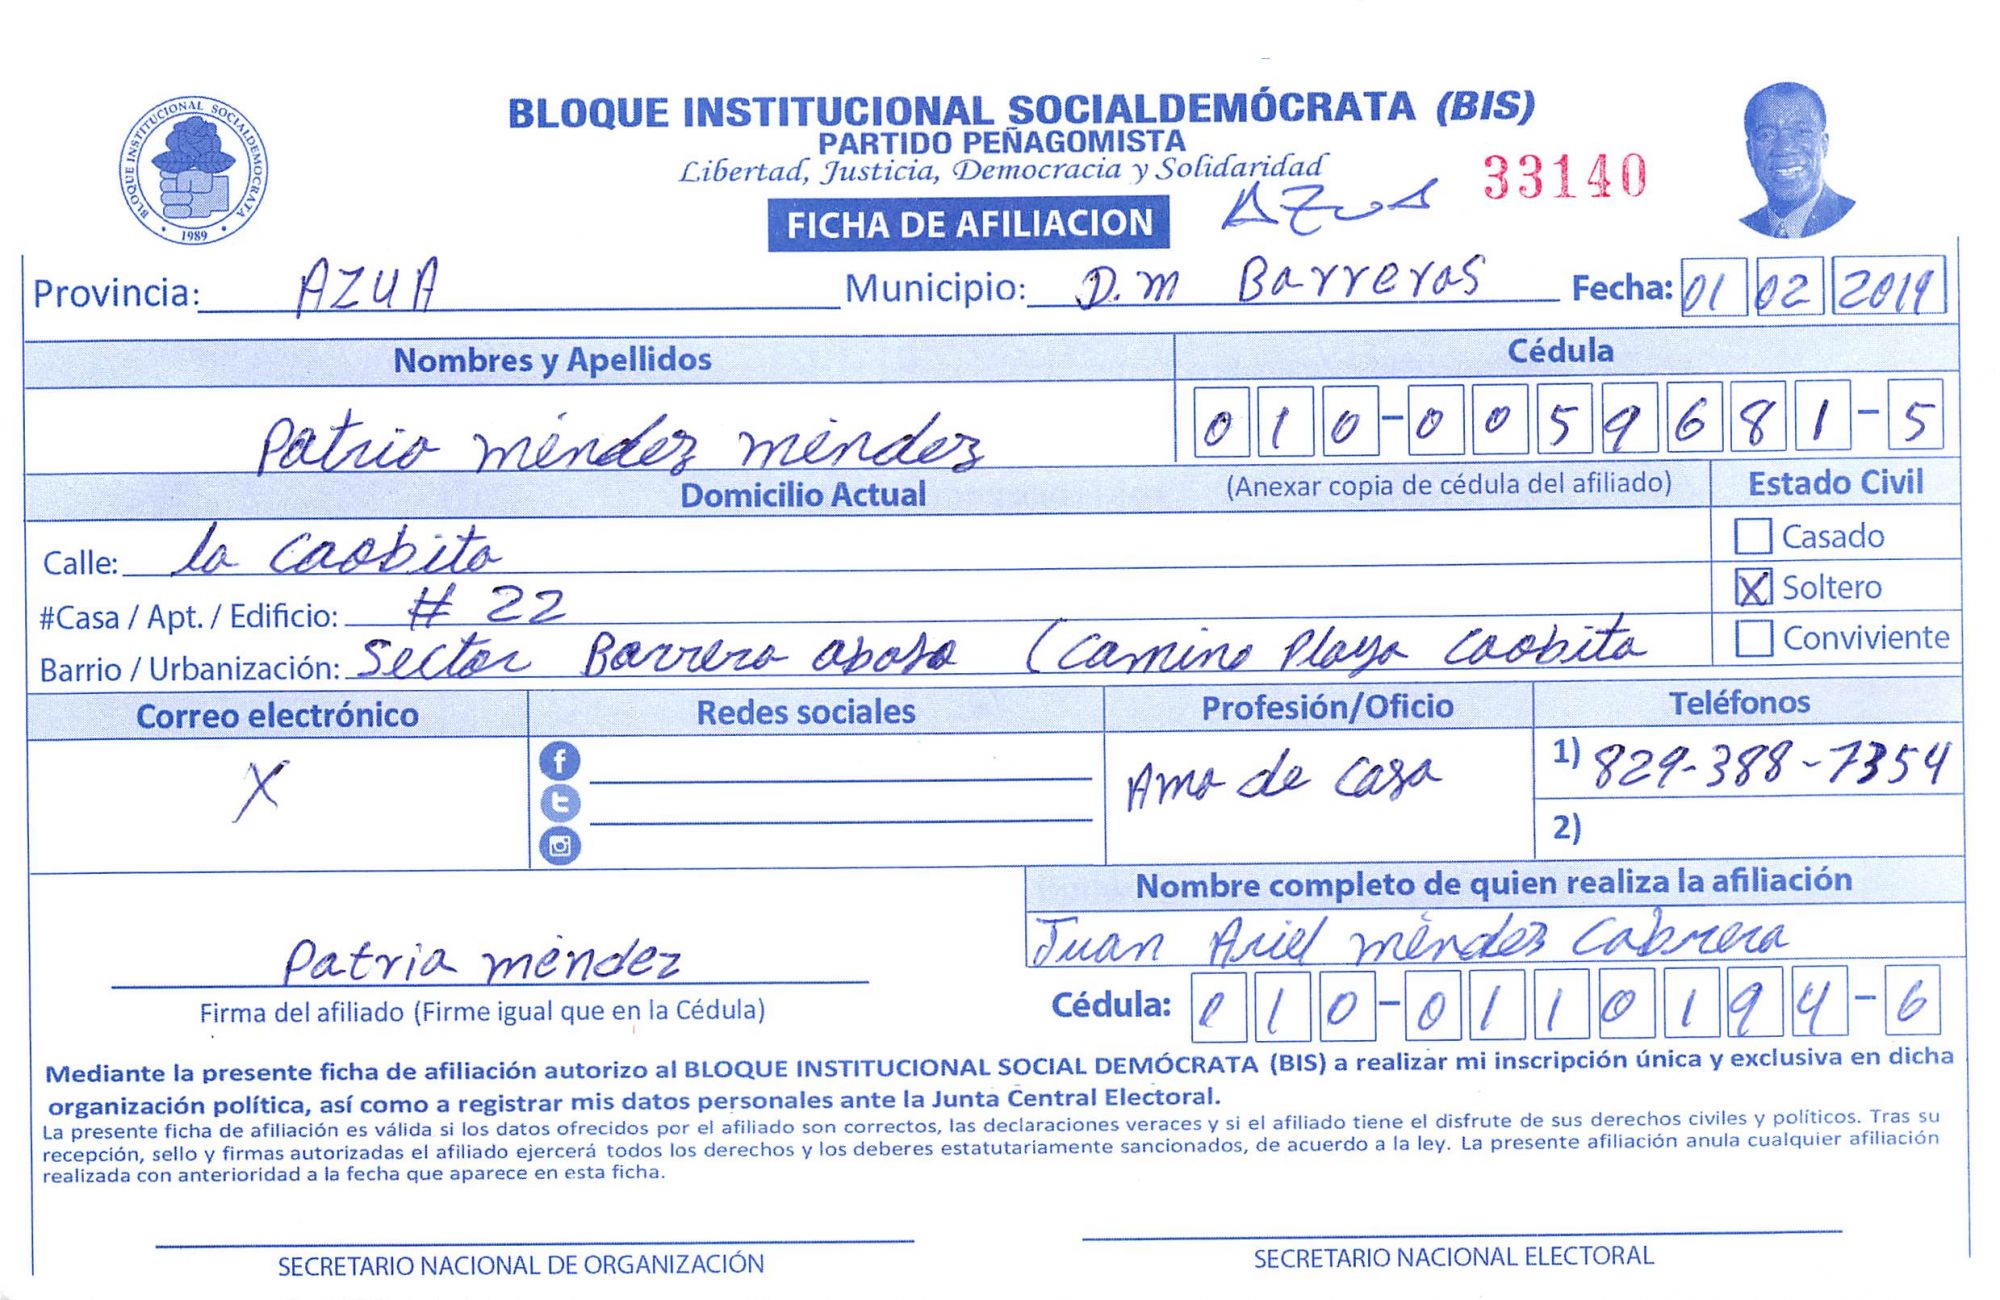 BLOQUE INSTITUCIONAL SOCIALDEMOCRATA
1989
BLOQUE INSTITUCIONAL SOCIALDEMÓCRATA (BIS)
PARTIDO PEÑAGOMISTA
Libertad, Justicia, Democracia y Solidaridad
33140
FICHA DE AFILIACION
AZUA
Provincia: AZUA Municipio: D.M Barreras Fecha: 01 02 2019
Nombres y Apellidos Cédula
Patria méndez méndez 010-0059681-5
Domicilio Actual (Anexar copia de cédula del afiliado) Estado Civil
Calle: la Caobita Casado
#Casa / Apt. / Edificio: # 22 X Soltero
Barrio / Urbanización: Sector Barrera abaja (Camino Playa Caobita Conviviente
Correo electrónico Redes sociales Profesión/Oficio Teléfonos
X Ama de casa 1) 829-388-7354
2)
Nombre completo de quien realiza la afiliación
Juan Ariel méndez Cabrera
Patria méndez
Firma del afiliado (Firme igual que en la Cédula) Cédula: 010-0110194-6
Mediante la presente ficha de afiliación autorizo al BLOQUE INSTITUCIONAL SOCIAL DEMÓCRATA (BIS) a realizar mi inscripción única y exclusiva en dicha
organización política, así como a registrar mis datos personales ante la Junta Central Electoral.
La presente ficha de afiliación es válida si los datos ofrecidos por el afiliado son correctos, las declaraciones veraces y si el afiliado tiene el disfrute de sus derechos civiles y políticos. Tras su
recepción, sello y firmas autorizadas el afiliado ejercerá todos los derechos y los deberes estatutariamente sancionados, de acuerdo a la ley. La presente afiliación anula cualquier afiliación
realizada con anterioridad a la fecha que aparece en esta ficha.
SECRETARIO NACIONAL DE ORGANIZACIÓN SECRETARIO NACIONAL ELECTORAL